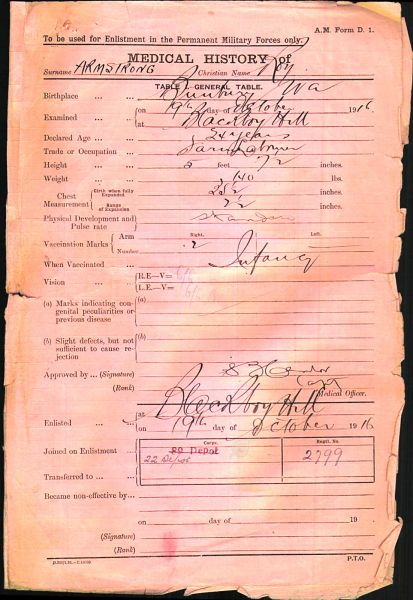 A.M. Form D. 1.
To be used for Enlistment in the Permanent Military Forces only.
MEDICAL HISTORY of
Surname ARMSTRONG Christian Name Roy
TABLE I—GENERAL TABLE.
Birthplace ... ... Bunbury Wa
Examined ... ... { on 19th day of October 1916
at Blackboy Hill
Declared Age ... ... 24 years
Trade or Occupation ... Farm Labourer
Height ... ... 5 feet 7½ inches.
Weight ... ... 140 lbs.
Chest Measurement { Girth when fully Expanded inches.
Range of Expansion inches.
Physical Development and Pulse rate
Vaccination Marks { Arm Right. Left.
Number 2
When Vaccinated ... Infancy
Vision ... ... { R.E—V=
L.E.—V=
(a) Marks indicating congenital peculiarities or previous disease (a)
(b) Slight defects, but not sufficient to cause rejection (b)
Approved by ... (Signature)
(Rank) Capt
Medical Officer.
Enlisted ... ... { at Blackboy Hill
on 19th day of October 1916
Corps. Regtl. No.
Joined on Enlistment ... Depot
22 Depot 2799
Transferred to ... ...
Became non-effective by ...
on day of 19
(Signature)
(Rank)
P.T.O.